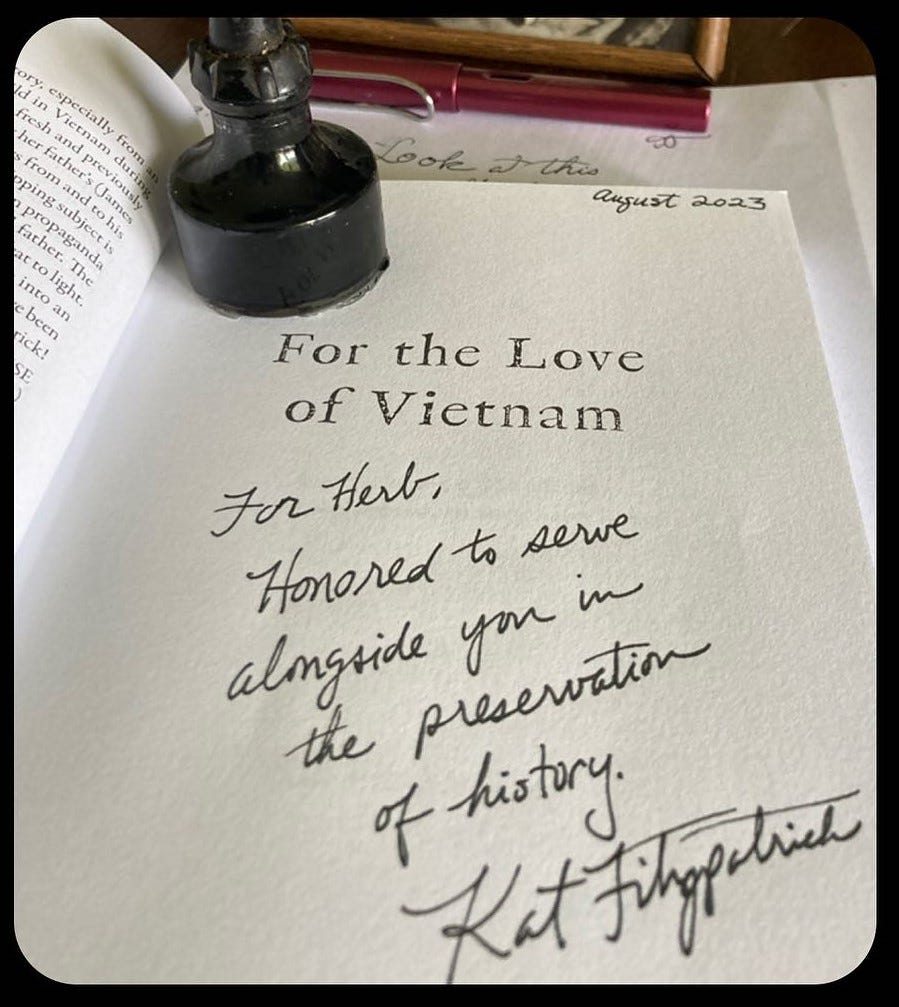 ory, especially from an
ld in Vietnam during
fresh and previously
her father's (James
s from and to his
pping subject is
n propaganda
father. The
at to light.
into an
e been
rick!
SE
)
Look at this
August 2023
For the Love
of Vietnam
For Herb,
Honored to serve
alongside you in
the preservation
of history.
Kat Fitzgpatrick